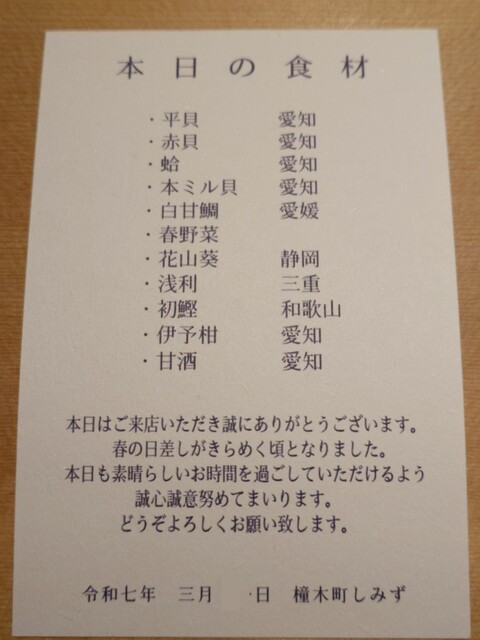 本日の食材
・平貝 愛知
・赤貝 愛知
・蛤 愛知
・本ミル貝 愛知
・白甘鯛 愛媛
・春野菜
・花山葵 静岡
・浅利 三重
・初鰹 和歌山
・伊予柑 愛知
・甘酒 愛知
本日はご来店いただき誠にありがとうございます。
春の日差しがきらめく頃となりました。
本日も素晴らしいお時間を過ごしていただけるよう
誠心誠意努めてまいります。
どうぞよろしくお願い致します。
令和七年 三月 日 橦木町しみず